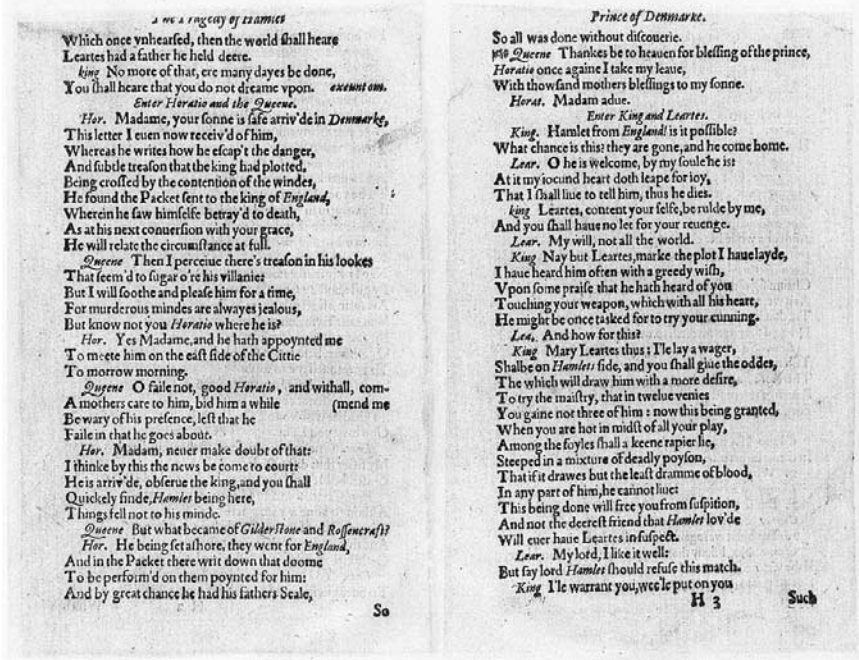 The Tragedy of Hamlet
Which once vnhearſed, then the world ſhall heare
Leartes had a father he held deere.
king No more of that, ere many dayes be done,
You ſhall heare that you do not dreame vpon. exeunt om.
Enter Horatio and the Queene.
Hor. Madame, your ſonne is ſafe arriv'de in Denmarke,
This letter I euen now receiv'd of him,
Whereas he writes how he eſcap't the danger,
And ſubtle treaſon that the king had plotted,
Being croſſed by the contention of the windes,
He found the Packet ſent to the king of England,
Wherein he ſaw himſelfe betray'd to death,
As at his next conuerſion with your grace,
He will relate the circumſtance at full.
Queene Then I perceiue there's treaſon in his lookes
That ſeem'd to ſugar o're his villanie:
But I will ſoothe and pleaſe him for a time,
For murderous mindes are alwayes jealous,
But know not you Horatio where he is?
Hor. Yes Madame, and he hath appoynted me
To meete him on the eaſt ſide of the Cittie
To morrow morning.
Queene O faile not, good Horatio, and withall, com-
A mothers care to him, bid him a while (mend me
Be wary of his preſence, leſt that he
Faile in that he goes about.
Hor. Madam, neuer make doubt of that:
I thinke by this the news be come to court:
He is arriv'de, obſerue the king, and you ſhall
Quickely finde, Hamlet being here,
Things fell not to his minde.
Queene But what became of Gilderſtone and Roſſencraft?
Hor. He being ſet aſhore, they went for England,
And in the Packet there writ down that doome
To be perform'd on them poynted for him:
And by great chance he had his fathers Seale,
So
Prince of Denmarke.
So all was done without diſcouerie.
Queene Thankes be to heauen for bleſſing of the prince,
Horatio once againe I take my leaue,
With thowſand mothers bleſſings to my ſonne.
Horat. Madam adue.
Enter King and Leartes.
King. Hamlet from England! is it poſſible?
What chance is this? they are gone, and he come home.
Lear. O he is welcome, by my ſoule he is:
At it my iocund heart doth leape for ioy,
That I ſhall liue to tell him, thus he dies.
king Leartes, content your ſelfe, be rulde by me,
And you ſhall haue no let for your reuenge.
Lear. My will, not all the world.
King Nay but Leartes, marke the plot I haue layde,
I haue heard him often with a greedy wiſh,
Vpon ſome praiſe that he hath heard of you
Touching your weapon, which with all his heart,
He might be once tasked for to try your cunning.
Lea. And how for this?
King Mary Leartes thus: I'le lay a wager,
Shalbe on Hamlets ſide, and you ſhall giue the oddes,
The which will draw him with a more deſire,
To try the maiſtry, that in twelue venies
You gaine not three of him: now this being granted,
When you are hot in midſt of all your play,
Among the foyles ſhall a keene rapier lie,
Steeped in a mixture of deadly poyſon,
That if it drawes but the leaſt dramme of blood,
In any part of him, he cannot liue:
This being done will free you from ſuſpition,
And not the deereſt friend that Hamlet lov'de
Will euer haue Leartes in ſuſpect.
Lear. My lord, I like it well:
But ſay lord Hamlet ſhould refuſe this match.
King I'le warrant you, wee'le put on you
H 3 Such